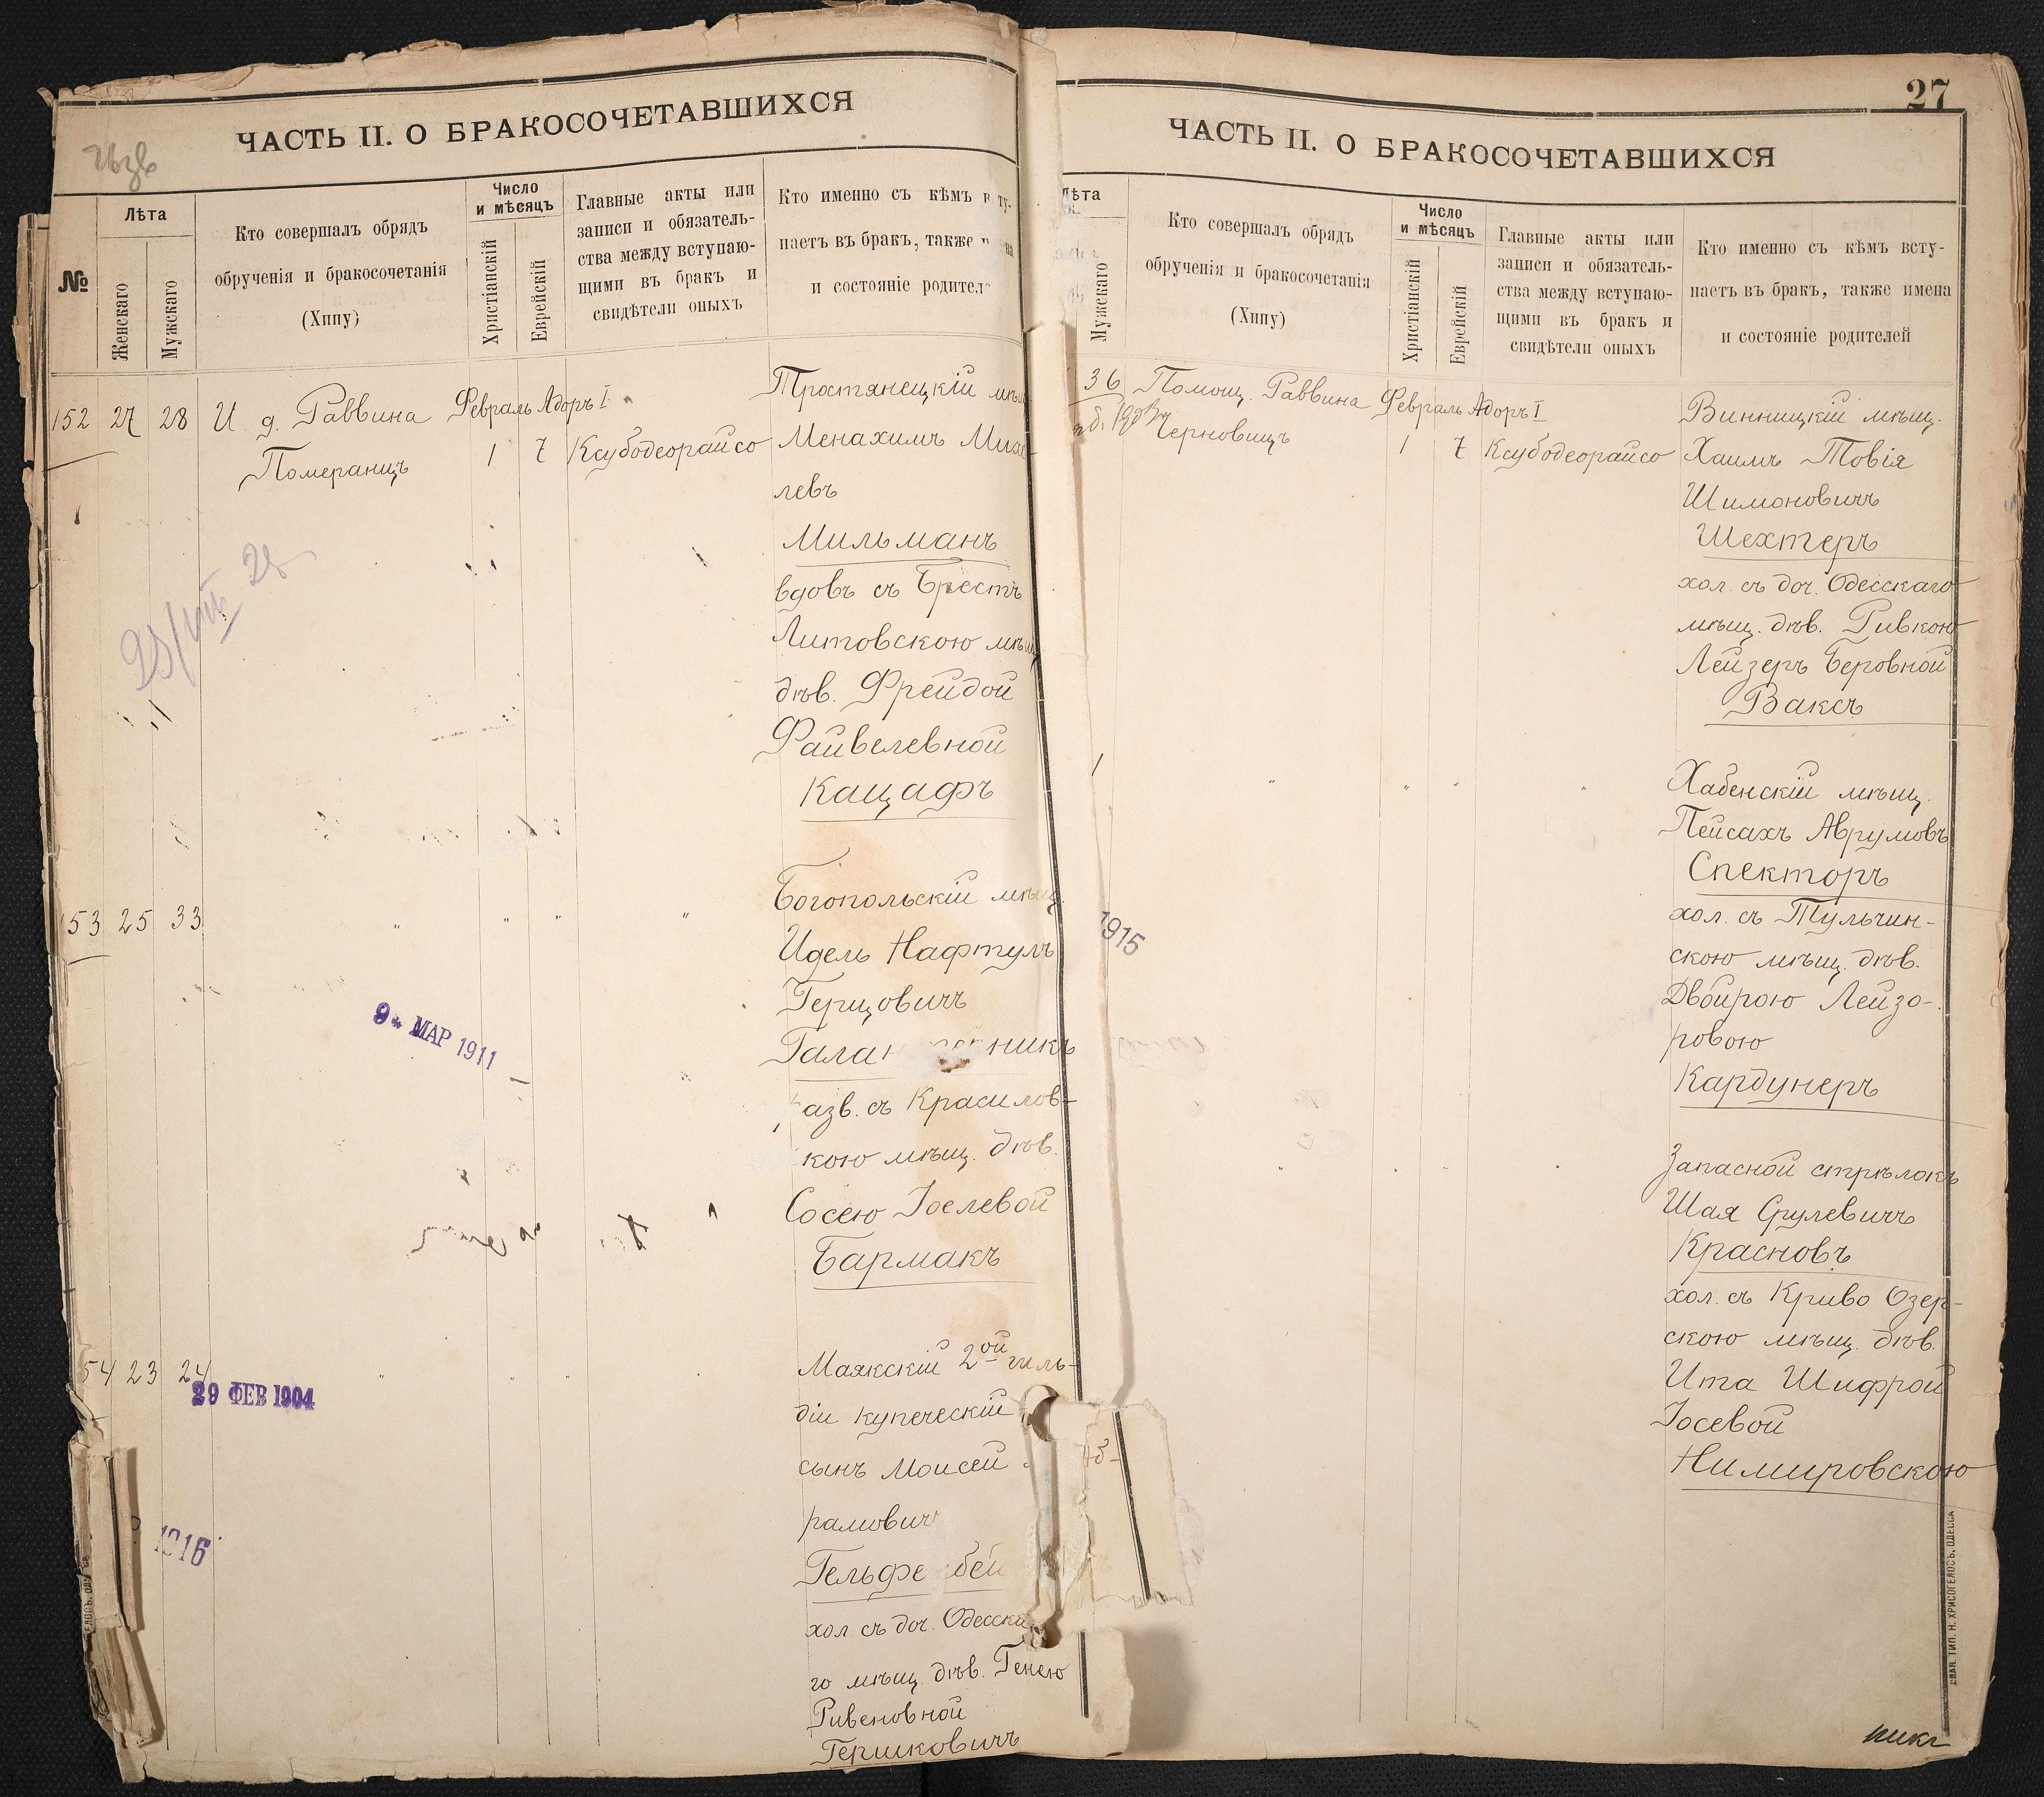 ЧАСТЬ II. О БРАКОСОЧЕТАВШИХСЯ
№
Лѣта
Женскаго
Мужскаго
Кто совершалъ обрядъ
обрученія и бракосочетанія
(Хипу)
Число
и мѣсяцъ
Христіанскій
Еврейскій
Главные акты или
записи и обязатель-
ства между вступаю-
щими въ бракъ и
свидѣтели оныхъ
Кто именно съ кѣмъ
паетъ въ бракъ, также
и состояніе
152 27 28 И д. Раввина Февраль Адоръ I
Померанцъ 1 7 Ксубодеорайсо
Тростянецкій
Менахимъ
левъ
Мильманъ
вдовъ съ Брестъ
Литовскою
дѣв. Фрейдой
Файвелевной
Кацафъ
53 25 33 " " " "
Богопольскій мѣщ.
Идель Нафтулъ
Герцовичъ
азв. съ Красилов-
кою мѣщ. дѣв.
Сосею Іоселевой
Бармакъ
9 МАР 1911
54 23 24
29 ФЕВ 1904
Маякскій 2ой гиль-
діи купеческій
сынъ Моисей
хол съ доч. Одесска
го мѣщ. дѣв. Генею
Ривеновной
Гершковичъ
27
ЧАСТЬ II. О БРАКОСОЧЕТАВШИХСЯ
Мужскаго
Кто совершалъ обрядъ
обрученія и бракосочетанія
(Хипу)
Число
и мѣсяцъ
Христіанскій
Еврейскій
Главные акты или
записи и обязатель-
ства между вступаю-
щими въ бракъ и
свидѣтели оныхъ
Кто именно съ кѣмъ всту-
паетъ въ бракъ, также имена
и состояніе родителей
36 Помощ. Раввина Февраль Адоръ I
Черновицъ 1 7 Ксубодеорайсо
Винницкій мѣщ.
Хаимъ Товія
Шимоновичъ
Шехтеръ
хол. съ доч. Одесскаго
мѣщ. дѣв. Ривкою
Лейзеръ Беровной
Ваксъ
" " " "
Хабенскій мѣщ.
Пейсахъ Аврумовъ
Спекторъ
хол. съ Тульчин-
скою мѣщ. дѣв.
Двойрою Лейзо-
ровою
Кардунеръ
1915
Запасной стрѣлокъ
Шая Срулевичъ
Красновъ
хол. съ Криво Озер-
скою мѣщ. дѣв.
Ита Шифрой
Іосевой
Нимировскою
ТИП. Н. ХРИСОГЕЛОСЪ, ОДЕССА